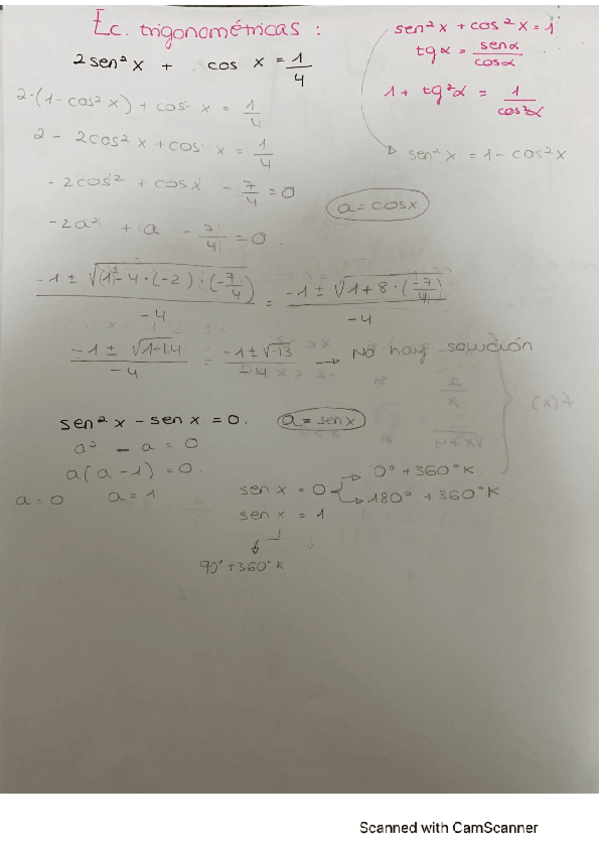 Ec. trigonométricas :
sen²x + cos²x = 1
tgα = senα/cosα
1 + tg²α = 1/cos²α
sen²x = 1 - cos²x
2sen²x + cos x = 1/4
2·(1-cos²x) + cos x = 1/4
2 - 2cos²x + cos x = 1/4
-2cos² + cosx - 7/4 = 0
a = cosx
-2a² + a - 7/4 = 0.
-1 ± √(1)²-4·(-2)·(-7/4) / -4 = -1 ± √1+8·(-7/4) / -4
-1 ± √1-14 / -4 = -1 ± √-13 / -4 → No hay solución
sen²x - sen x = 0. a = sen x
a² - a = 0
a(a-1) = 0.
a = 0 a = 1
sen x = 0 → 0° + 360°K
→ 180° + 360°K.
sen x = 1
90° + 360°K
Scanned with CamScanner